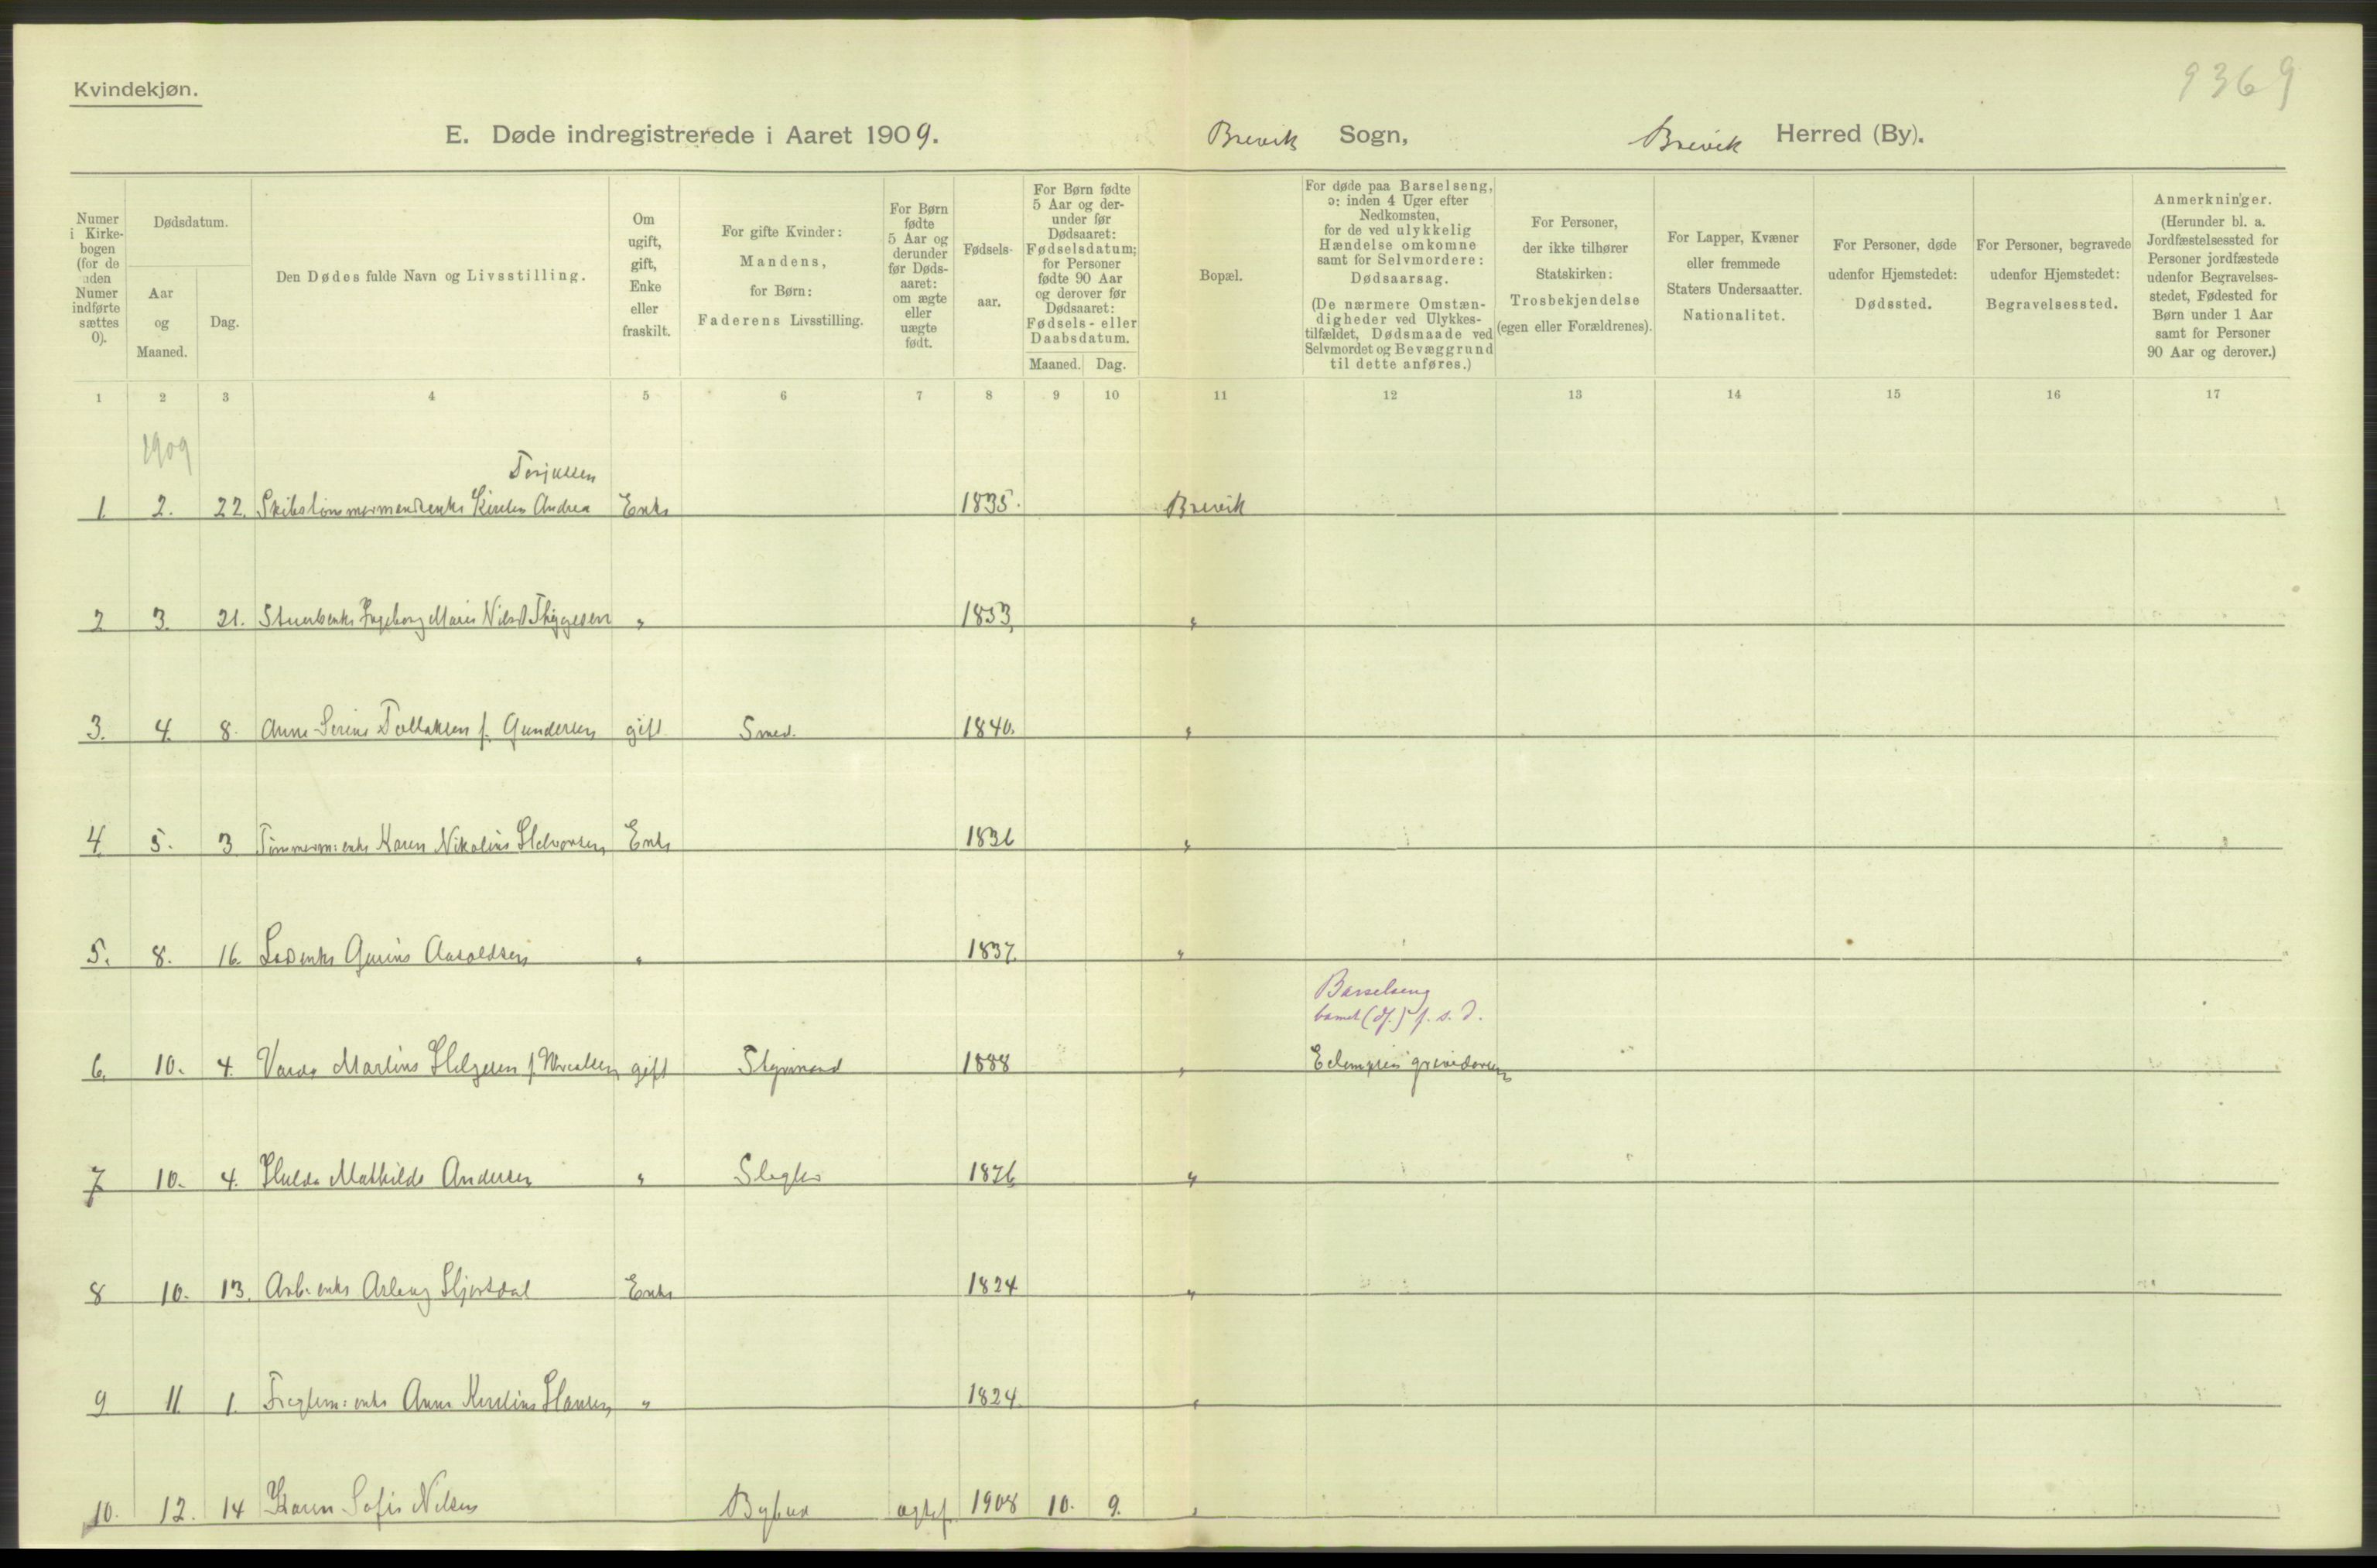 Kvindekjøn.
9369
E. Døde indregistrerede i Aaret 1909. Brevik Sogn, Brevik Herred (By).
Numer i Kirkebogen (for de uden Numer indførte sættes 0).
Dødsdatum.
Aar og Maaned.
Dag.
Den Dødes fulde Navn og Livsstilling.
Om ugift, gift, Enke eller fraskilt.
For gifte Kvinder: Mandens, for Børn: Faderens Livsstilling.
For Børn fødte 5 Aar og derunder før Dødsaaret: om ægte eller uægte født.
Fødselsaar.
For Børn fødte 5 Aar og derunder før Dødsaaret: Fødselsdatum; for Personer fødte 90 Aar og derover før Dødsaaret: Fødsels- eller Daabsdatum.
Maaned. Dag.
Bopæl.
For døde paa Barselseng, ɔ: inden 4 Uger efter Nedkomsten, for de ved ulykkelig Hændelse omkomne samt for Selvmordere: Dødsaarsag. (De nærmere Omstændigheder ved Ulykkestilfældet, Dødsmaade ved Selvmordet og Bevæggrund til dette anføres.)
For Personer, der ikke tilhører Statskirken: Trosbekjendelse (egen eller Forældrenes).
For Lapper, Kvæner eller fremmede Staters Undersaatter. Nationalitet.
For Personer, døde udenfor Hjemstedet: Dødssted.
For Personer, begravede udenfor Hjemstedet: Begravelsessted.
Anmerkninger. (Herunder bl. a. Jordfæstelsessted for Personer jordfæstede udenfor Begravelsesstedet, Fødested for Børn under 1 Aar samt for Personer 90 Aar og derover.)
1 2 3 4 5 6 7 8 9 10 11 12 13 14 15 16 17
1909
Torjussen
1 2. 22. Skibstømmermandsenke Kirsten Andrea Enke 1835. Brevik
2 3. 21. Ingeborg Marie Thygesen " 1853 "
3. 4. 8. Anne Serine Tollaksen f. Gundersen gift Smed. 1840. "
4 5. 3 Tømmerm: enke Karen Nikoline Halvorsen Enke 1836 "
5. 8. 16. Lodsenke Gurine Aasoldsen " 1837. "
Barselseng
barnet (df.) f. s. d.
6. 10. 4. Martine Helgesen f. gift Styrmand 1888 " Eclampsia gravidarum
7 10. 4. Hulda Mathilde Andersen " Slagter 1876 "
8 10. 13. Arb. enke Aslaug Hjertdal Enke 1824 "
9 11. 1. enke Anne Kirstine Hansen " 1824. "
10. 12. 14 Karen Sofie Nilsen Bybud ægtef. 1908 10. 9. "